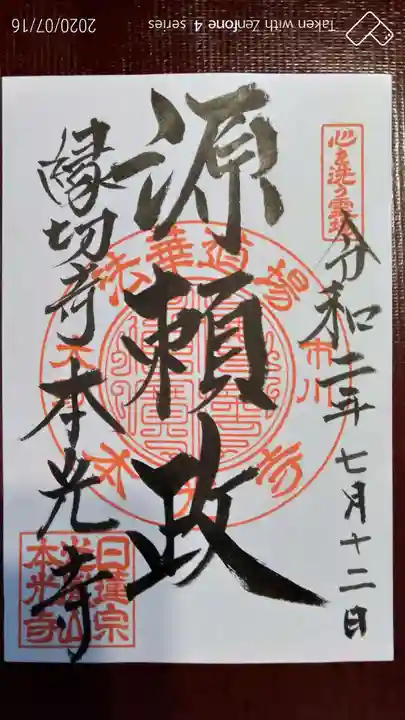 2020/07/16
Taken with Zenfone 4 series
心を洗う霊場
令和二年七月十二日
源頼政
縁切寺本光寺
法華道場
市川
大野
本光寺
日蓮宗
光胤山
本光寺